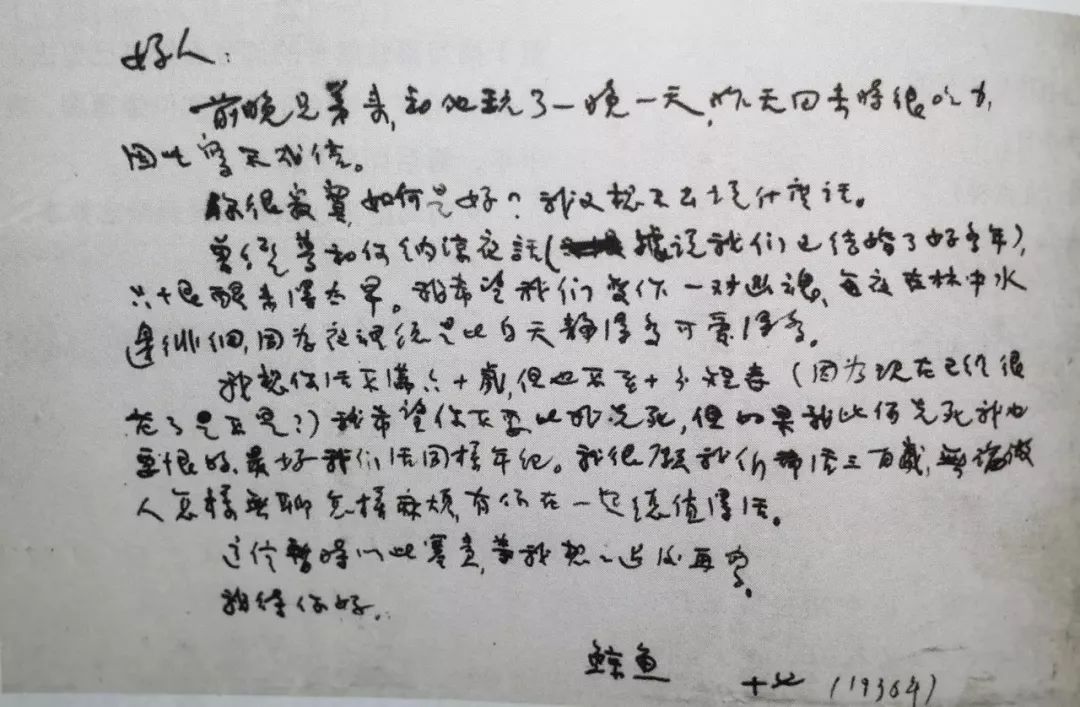 好人：
前晚兄弟来，和他玩了一晚一天，昨天回去时很吃力，
因此写不成信。
你很寂寞，如何是好？我又想不出说什麼话。
曾经夢和你纳凉夜話（據说我们已结婚了好多年），
只恨醒来得太早。我希望我们变作一对幽魂，每夜在林中水
邊徘徊，因为夜裡總是比白天静得多可爱得多。
我想你活不满六十歲，但也不至十分短寿（因为现在已经很
老了是不是？）我希望你不要比我先死，但如果我比你先死我也
要恨的，最好我们活同样年纪。我很願我们都活三百歲，無論做
人怎樣無聊怎樣麻烦，有你在一起總值得活。
这信暫時以此塞責，等我想一些後再写。
我待你好。
鲸鱼
十七（1936 4）